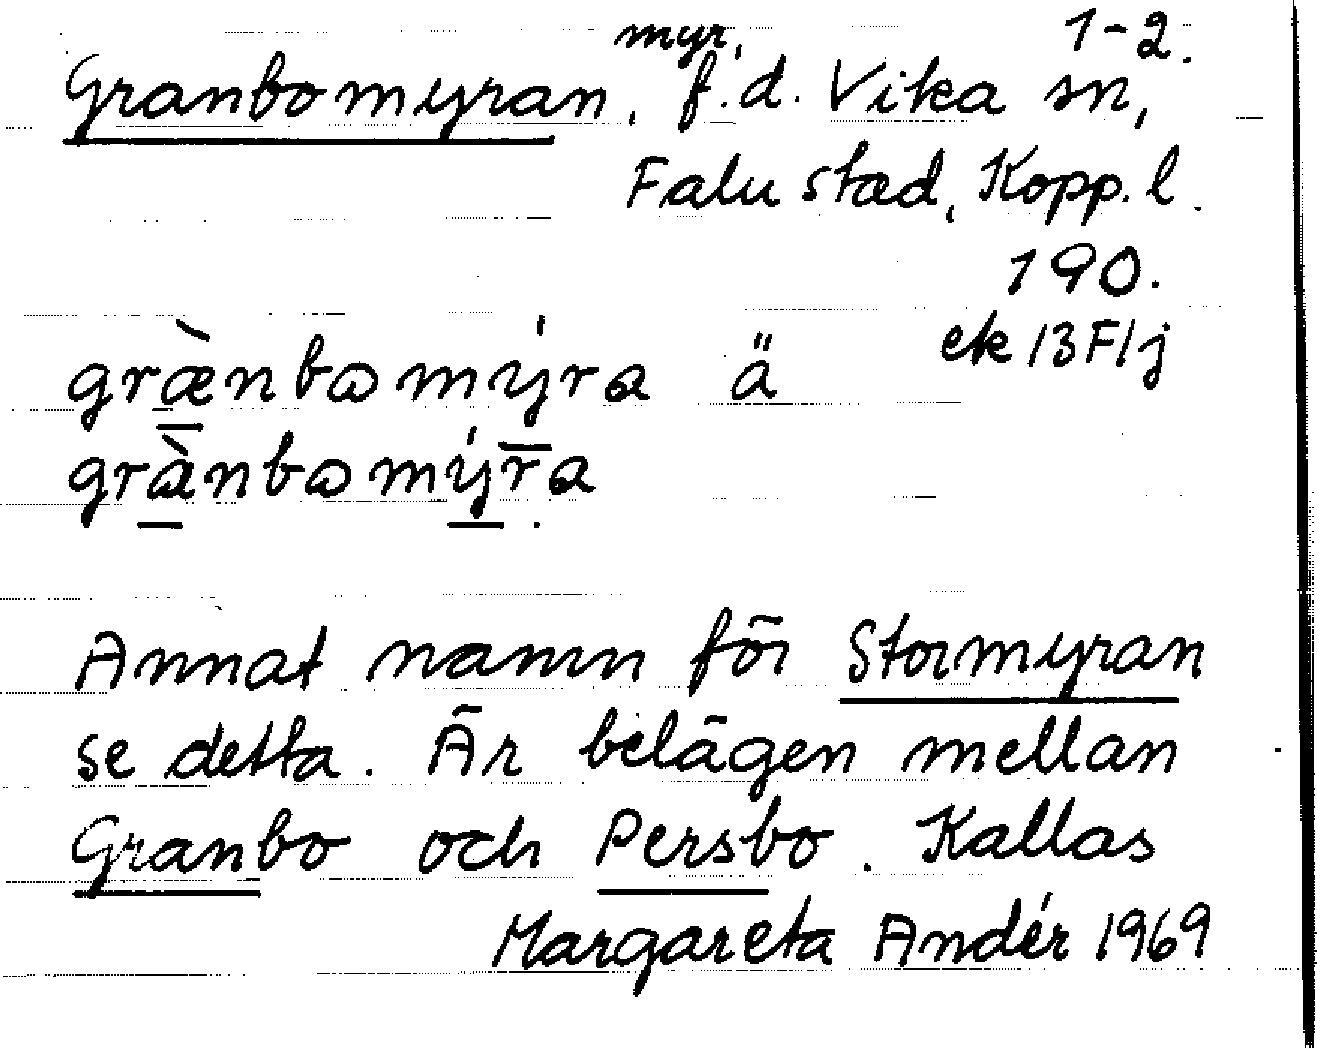 myr, 1-2.
Granbomyran, f.d. Vika sn,
Falu stad, Kopp. l.
190.
ek 13F1j
græ̀nbωmýra ä
grànbωmýr̅a
Annat namn för Stormyran
se detta. Är belägen mellan
Granbo och Persbo. Kallas
Margareta Andér 1969